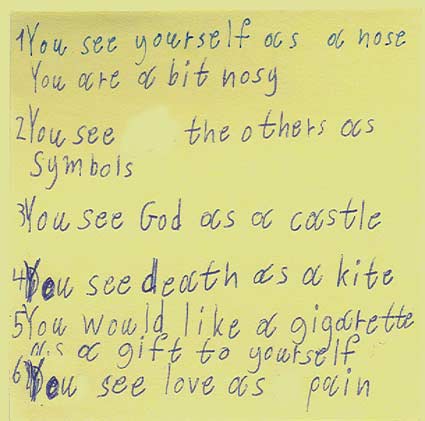 1 You see yourself as a nose
You are a bit nosy
2 You see the others as
Symbols
3 You see God as a castle
4 You see death as a kite
5 You would like a gigarette
as a gift to yourself
6) You see love as pain